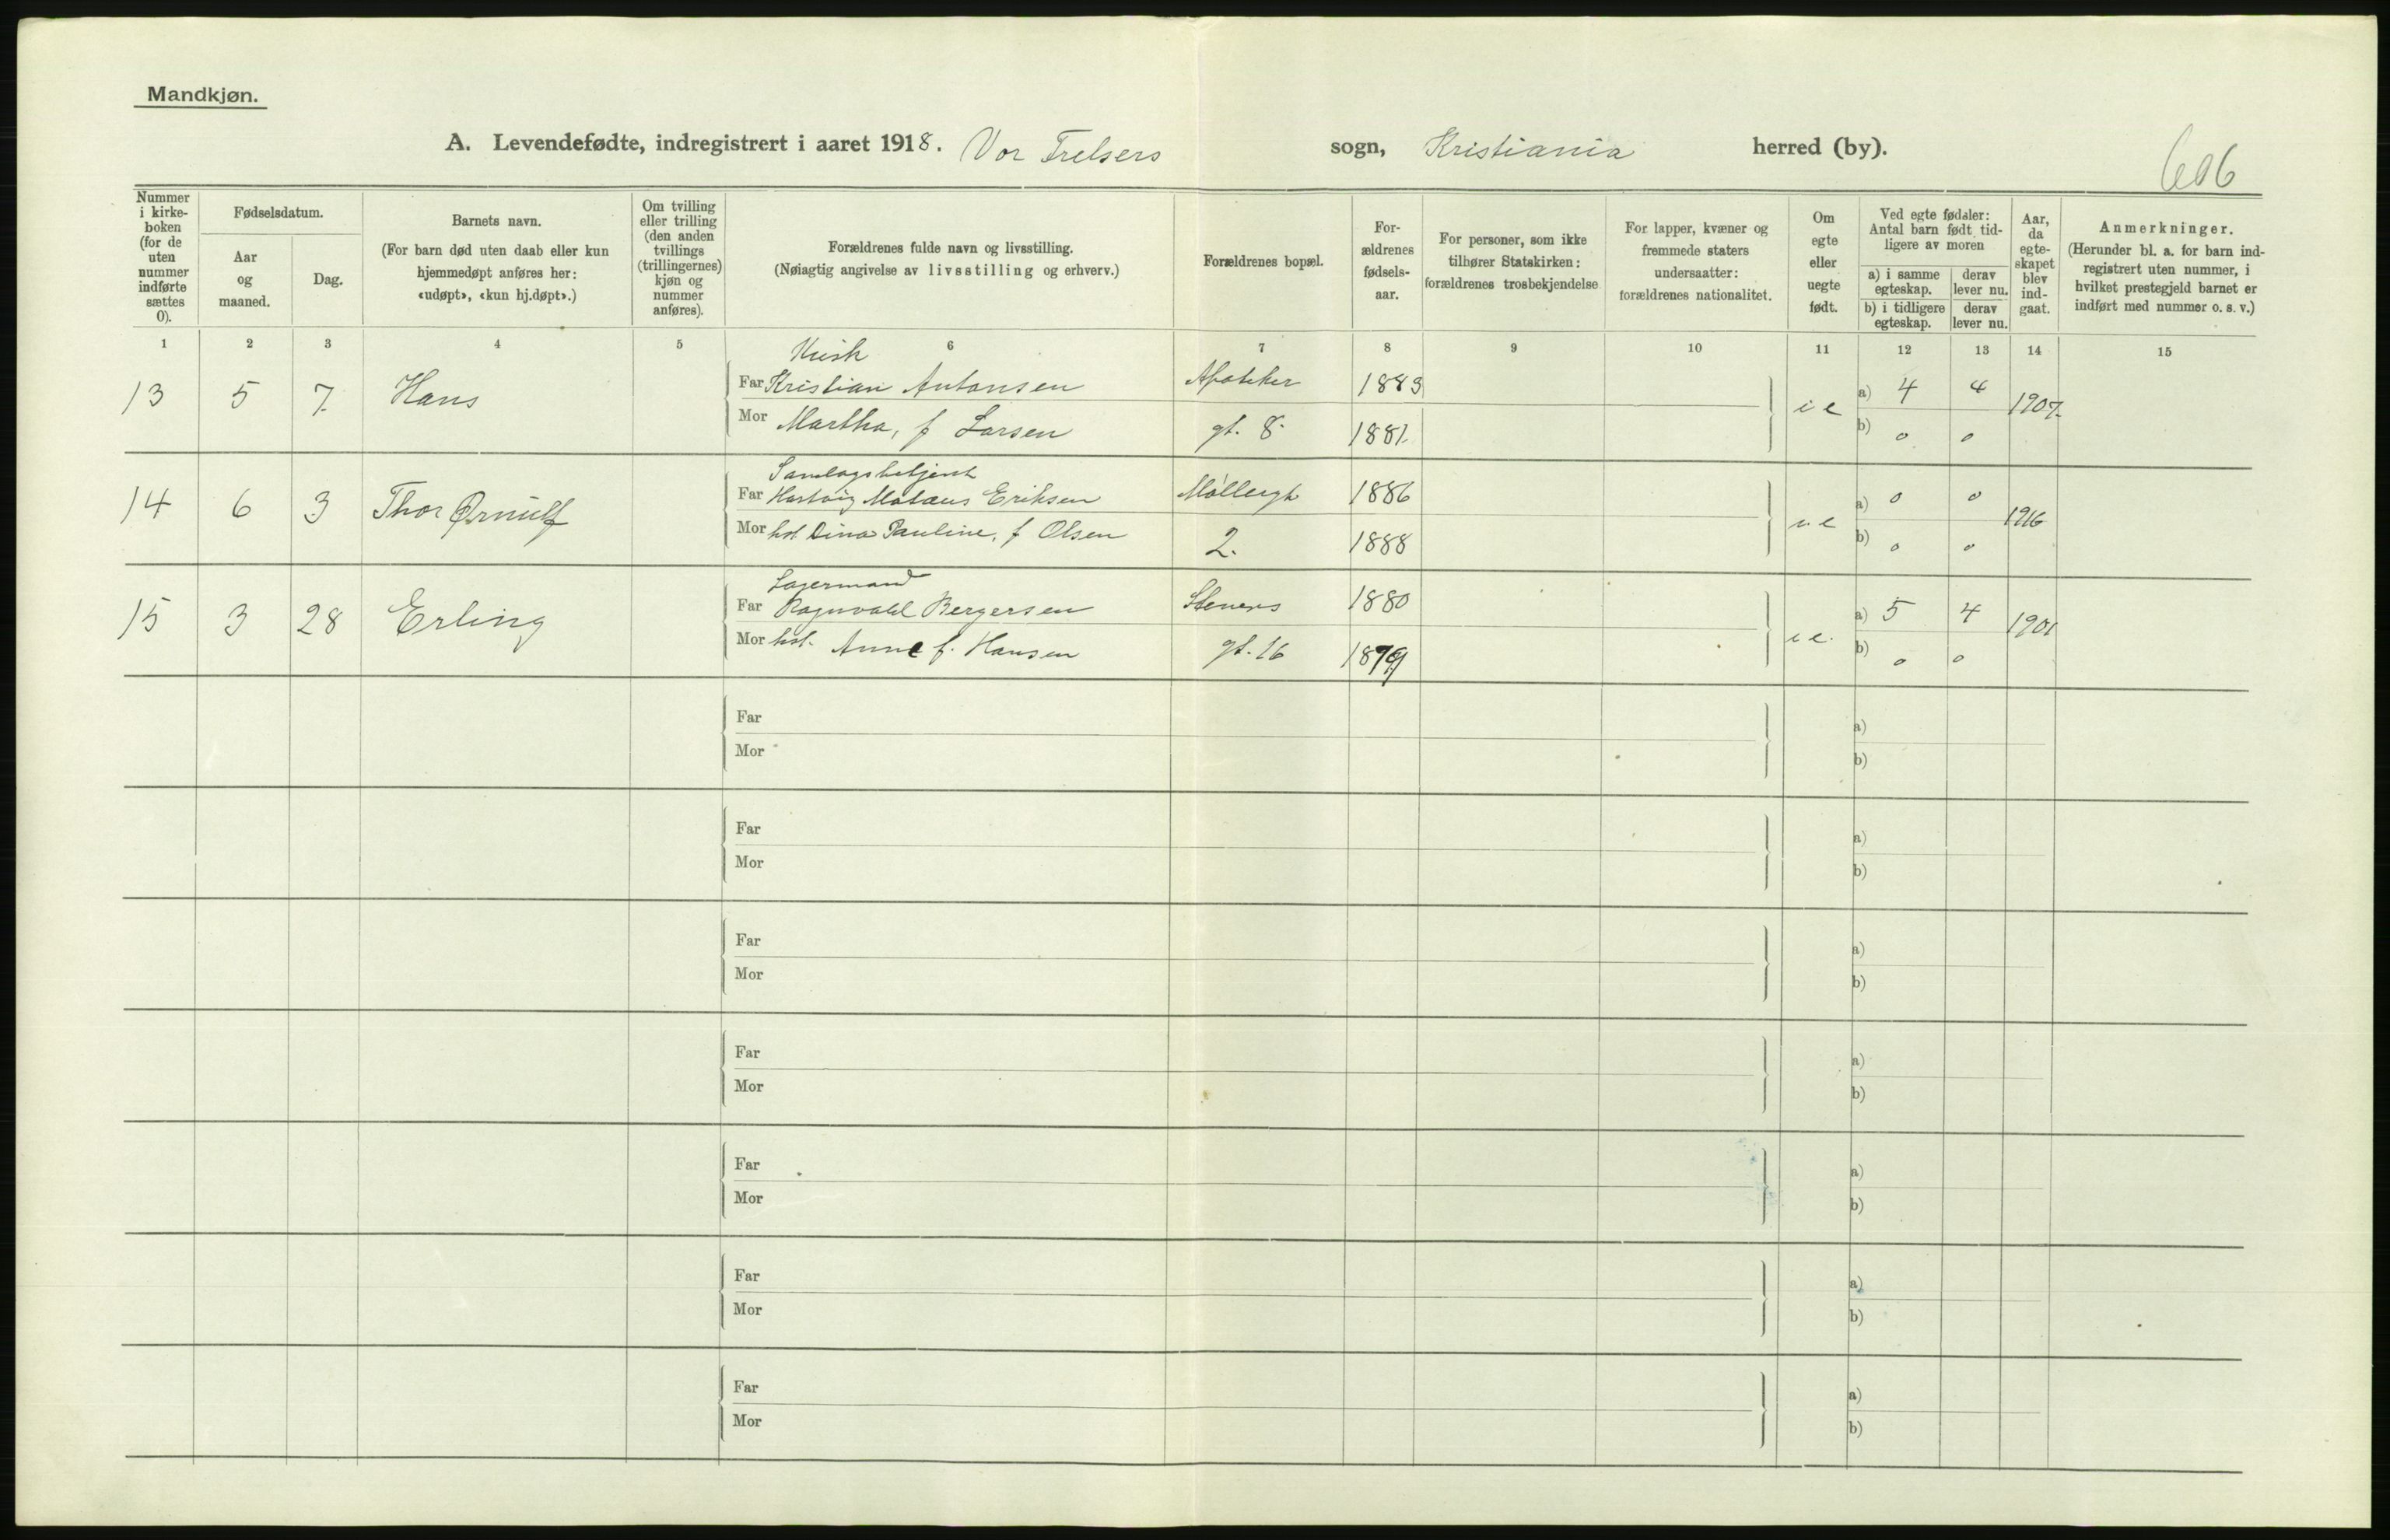 Mandkjøn.
A. Levendefødte, indregistrert i aaret 1918. Vor Frelsers sogn, Kristiania herred (by).
606
Nummer i kirke- boken (for de uten nummer indførte sættes 0).
Fødselsdatum.
Aar og maaned.
Dag.
Barnets navn.
(For barn død uten daab eller kun hjemmedøpt anføres her: «udøpt», «kun hj.døpt».)
Om tvilling eller trilling (den anden tvillings (trillingernes) kjøn og nummer anføres).
Forældrenes fulde navn og livsstilling.
(Nøiagtig angivelse av livsstilling og erhverv.)
Forældrenes bopæl.
For- ældrenes fødsels- aar.
For personer, som ikke tilhører Statskirken: forældrenes trosbekjendelse
For lapper, kvæner og fremmede staters undersaatter: forældrenes nationalitet.
Om egte eller uegte født.
Ved egte fødsler: Antal barn født tid- ligere av moren
a) i samme egteskap.
derav lever nu.
b) i tidligere egteskap.
derav lever nu.
Aar, da egte- skapet blev ind- gaat.
Anmerkninger.
(Herunder bl. a. for barn ind- registrert uten nummer, i hvilket prestegjeld barnet er indført med nummer o. s. v.)
1 2 3 4 5 6 7 8 9 10 11 12 13 14 15
Kusk
13 5 7. Hans Far Kristian Antonsen Apoteker 1883 i e a) 4 4 1907.
Mor Martha, f Larsen gt. 8. 1881. b) 0 0
Samlagsbetjent
14 6 3 Thor Ørnulf Far Hartvig Mataus Eriksen Møllergt 1886 a) 0 0 1916
Mor hst Dina Pauline, f Olsen 2. 1888 b) 0 0
Lagermand
15 3 28 Erling Far Ragnvald Bergersen Steners 1880 i e. a) 5 4 1901
Mor hst. Anne f. Hansen gt. 16 1879 b) 0 0
Far a)
Mor b)
Far a)
Mor b)
Far a)
Mor b)
Far a)
Mor b)
Far a)
Mor b)
Far a)
Mor b)
Far a)
Mor b)